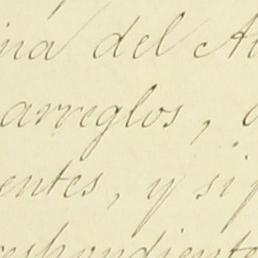 del
arreglos,
entes, y si
respondiente